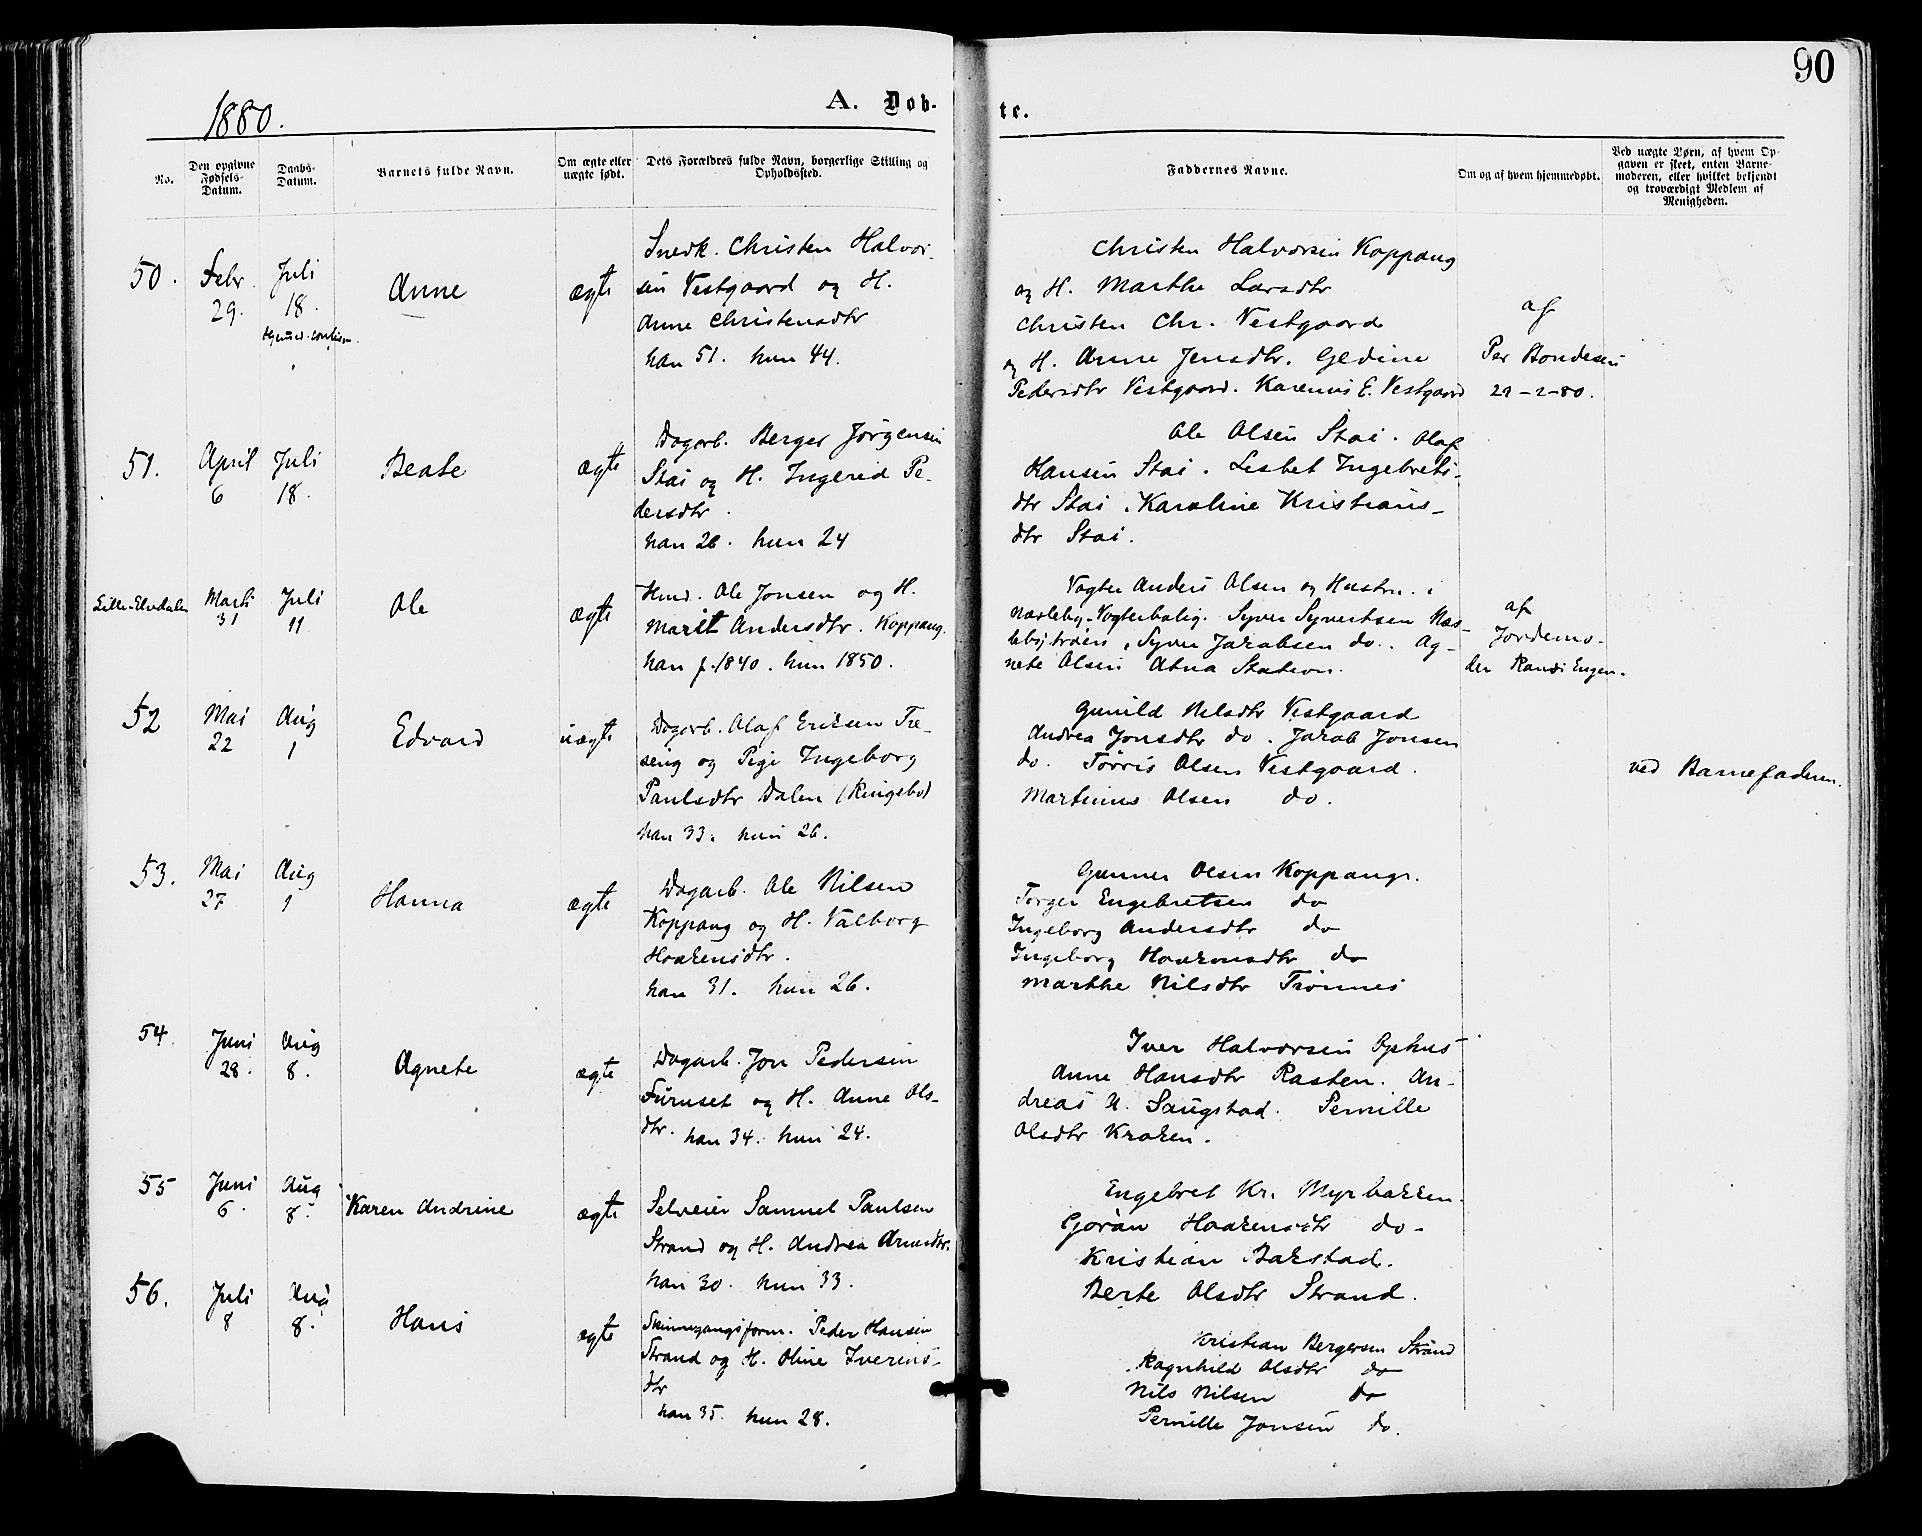 90
1880.
A. Døb-
te.
No.
Den opgivne Fødsels-Datum.
Daabs-Datum.
Barnets fulde Navn.
Om ægte eller uægte født.
Dets Forældres fulde Navn, borgerlige Stilling og Opholdssted.
Faddernes Navne.
Om og af hvem hjemmedøbt.
Ved uægte Børn, af hvem Op-
gaven er skeet, enten Barne-
moderen, eller hvilket bekjendt
og troværdigt Medlem af
Menigheden.
50.
Febr. 29.
Juli 18.
Anne
ægte
Snedk. Christen Halvor-
sen Vestgaard og H.
Anne Christensdtr
han 51. hun 44.
Christen Halvorsen Koppang
og H. Marthe Larsdtr
Christen Chr. Vestgaard
og H. Anne Jensdtr. Gedine
Pedersdtr Vestgaard. Karenus E. Vestgaard
af
Per Bondesen
29-2-80.
51.
April 6
Juli 18.
Beate
ægte
Dagarb. Berger Jørgensen
Stai og H. Ingerid Pe-
dersdtr.
han 26. hun 24
Ole Olsen Stai. Olaf
Hansen Stai. Lisbet Ingebrets-
dtr Stai. Karoline Kristians-
dtr Stai.
Lille-Elvedalen
Marts 31
Juli 11
Ole
ægte
Hmd. Ole Jonsen og H.
Marit Andersdtr. Koppang.
han f. 1840. hun 1850.
Vogter Anders Olsen og Hustru. i
Næsleby-Vogterbolig. Syver Syvertsen Næs-
lebytrøen, Syver Jakobsen do.. Ag-
nete Olsen Atna Station.
af
Jordemo-
der Randi Engen.
52
Mai 22
Aug 1
Edvard
uægte
Dagarb. Olaf Eriksen Tre-
seng og Pige Ingeborg
Paulsdtr Dalen (Ringebu)
han 33. hun 26.
Gunild Nilsdtr Vestgaard
Andrea Jonsdtr do. Jakob Jonsen
do. Tørris Olsen Vestgaard.
Martinus Olsen do.
ved Barnefaderen.
53.
Mai 27
Aug 1
Hanna
ægte
Dagarb. Ole Nilsen
Koppang og H. Valborg
Haakensdtr.
han 31. hun 26.
Gunner Olsen Koppang.
Torger Engebretsen do
Ingeborg Andersdtr do
Ingeborg Haakensdtr do
Marthe Nilsdtr Trønnes
54
Juni 28.
Aug 8.
Agnete
ægte
Dagarb. Jon Pedersen
Furuset og H. Anne Ols-
dtr. han 34. hun 24.
Iver Halvorsen Ophus
Anne Hansdtr Rasten. An-
dreas N. Saugstad. Pernille
Olsdtr Kroken.
55
Juni 6.
Aug 8.
Karen Andrine
ægte
Selveier Samuel Paulsen
Strand og H. Andrea Arnesdtr.
han 30. hun 33.
Engebret Kr. Myrbakken.
Gøran Haakensdtr do-
Kristian Bakstad.
Berte Olsdtr Strand.
56.
Juli 8
Aug 8.
Hans
ægte
Skinnegangsform. Peder Hansen
Strand og H. Oline Iverens-
dtr
han 35. hun 28.
Kristian Bergersen Strand
Ragnhild Olsdtr do
Nils Nilsen do
Pernille Jonsen do.